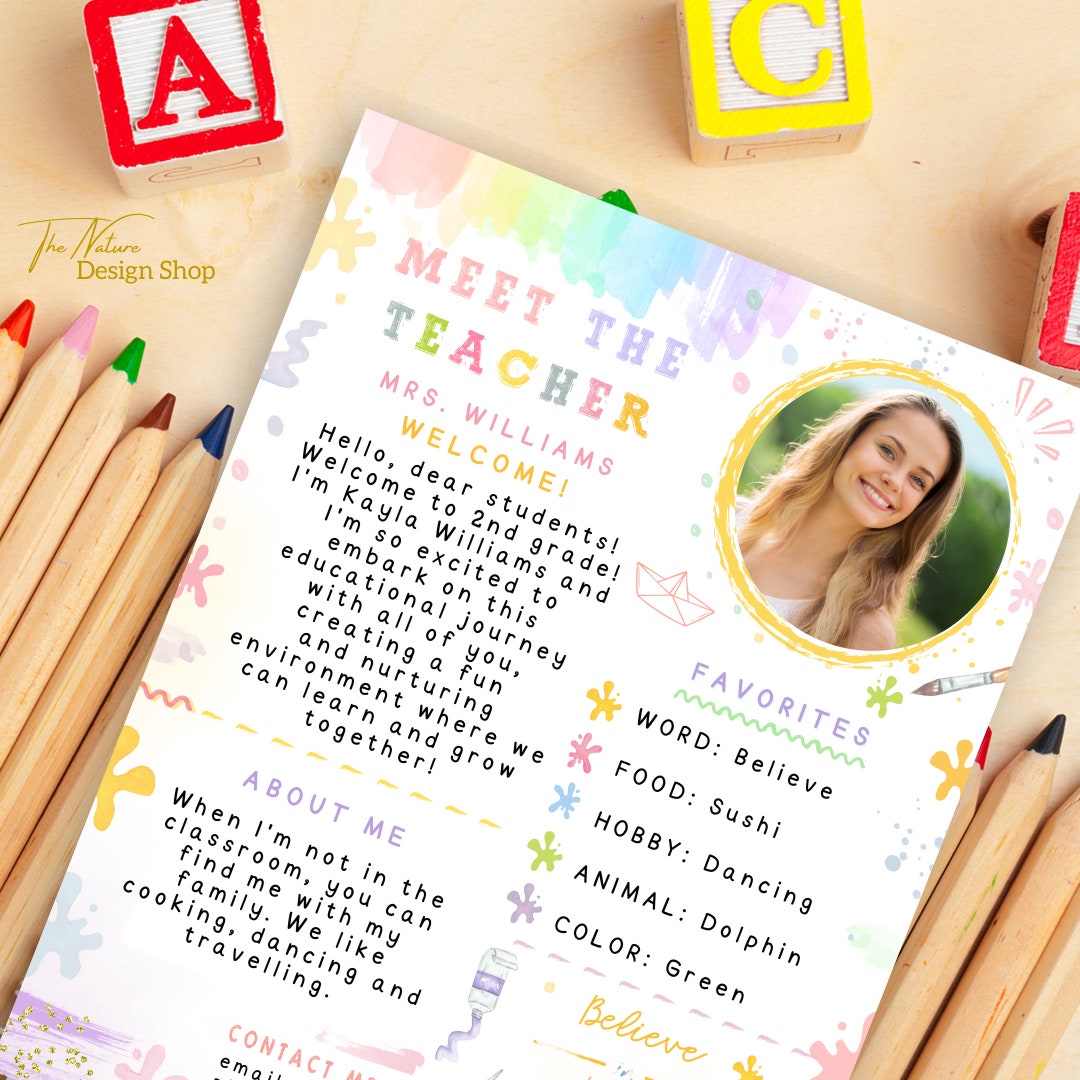 A
C
The Nature
Design Shop
MEET THE
TEACHER
MRS. WILLIAMS
WELCOME!
Hello, dear students!
Welcome to 2nd grade!
I'm Kayla Williams and
I'm so excited to
embark on this
educational journey
with all of you,
creating a fun
and nurturing
environment where we
can learn and grow
together!
ABOUT ME
When I'm not in the
classroom, you can
find me with my
family. We like
cooking, dancing and
travelling.
CONTACT ME
email
FAVORITES
WORD: Believe
FOOD: Sushi
HOBBY: Dancing
ANIMAL: Dolphin
COLOR: Green
Believe